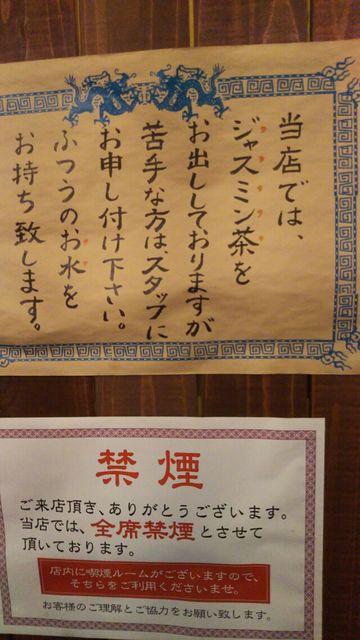 当店では、
ジャスミン茶を
お出ししておりますが
苦手な方はスタッフに
お申し付け下さい。
ふつうのお水を
お持ち致します。
禁煙
ご来店頂き、ありがとうございます。
当店では、全席禁煙とさせて
頂いております。
店内に喫煙ルームがございますので、
そちらをご利用くださいませ。
お客様のご理解とご協力をお願い致します。